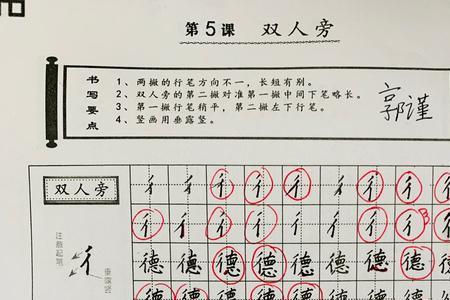 第5课 双人旁
书写要点
1、两撇的行笔方向不一，长短有别。
2、双人旁的第二撇对准第一撇中间下笔略长。
3、第一撇行笔稍平，第二撇左下行笔。
4、竖画用垂露竖。
郭谨
双人旁
彳 彳 彳 彳 彳 彳 彳 彳
注意起笔
彳
垂露竖
彳 彳 彳 彳 彳 彳 彳 彳
德 德 德 德 德 德 德 德
德 德 德 德 德 德 德 德